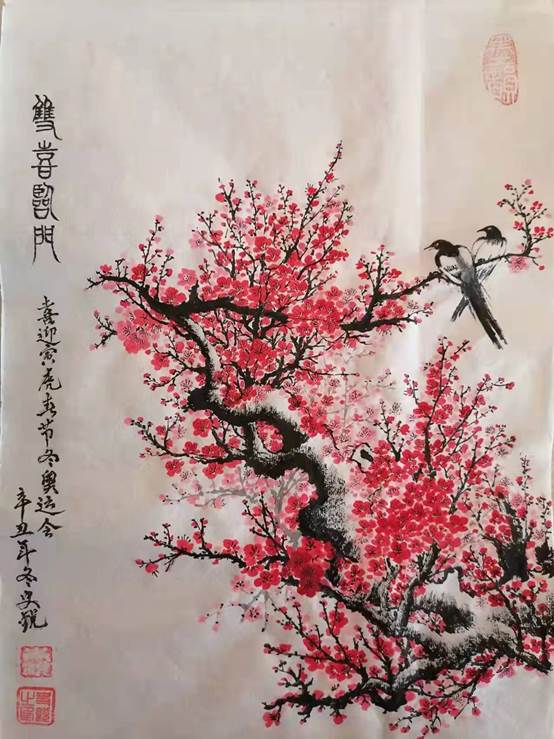 雙喜臨門
喜迎寅虎春节冬奥运会
辛丑年冬